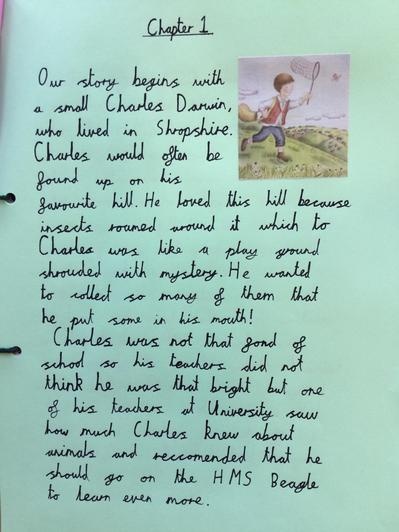 Chapter 1
Our story begins with
a small Charles Darwin,
who lived in Shropshire.
Charles would often be
found up on his
favourite hill. He loved this hill because
insects roamed around it which to
Charles was like a play ground
shrouded with mystery. He wanted
to collect so many of them that
he put some in his mouth!
Charles was not that fond of
school so his teachers did not
think he was that bright but one
of his teachers at University saw
how much Charles knew about
animals and reccomended that he
should go on the HMS Beagle
to learn even more.